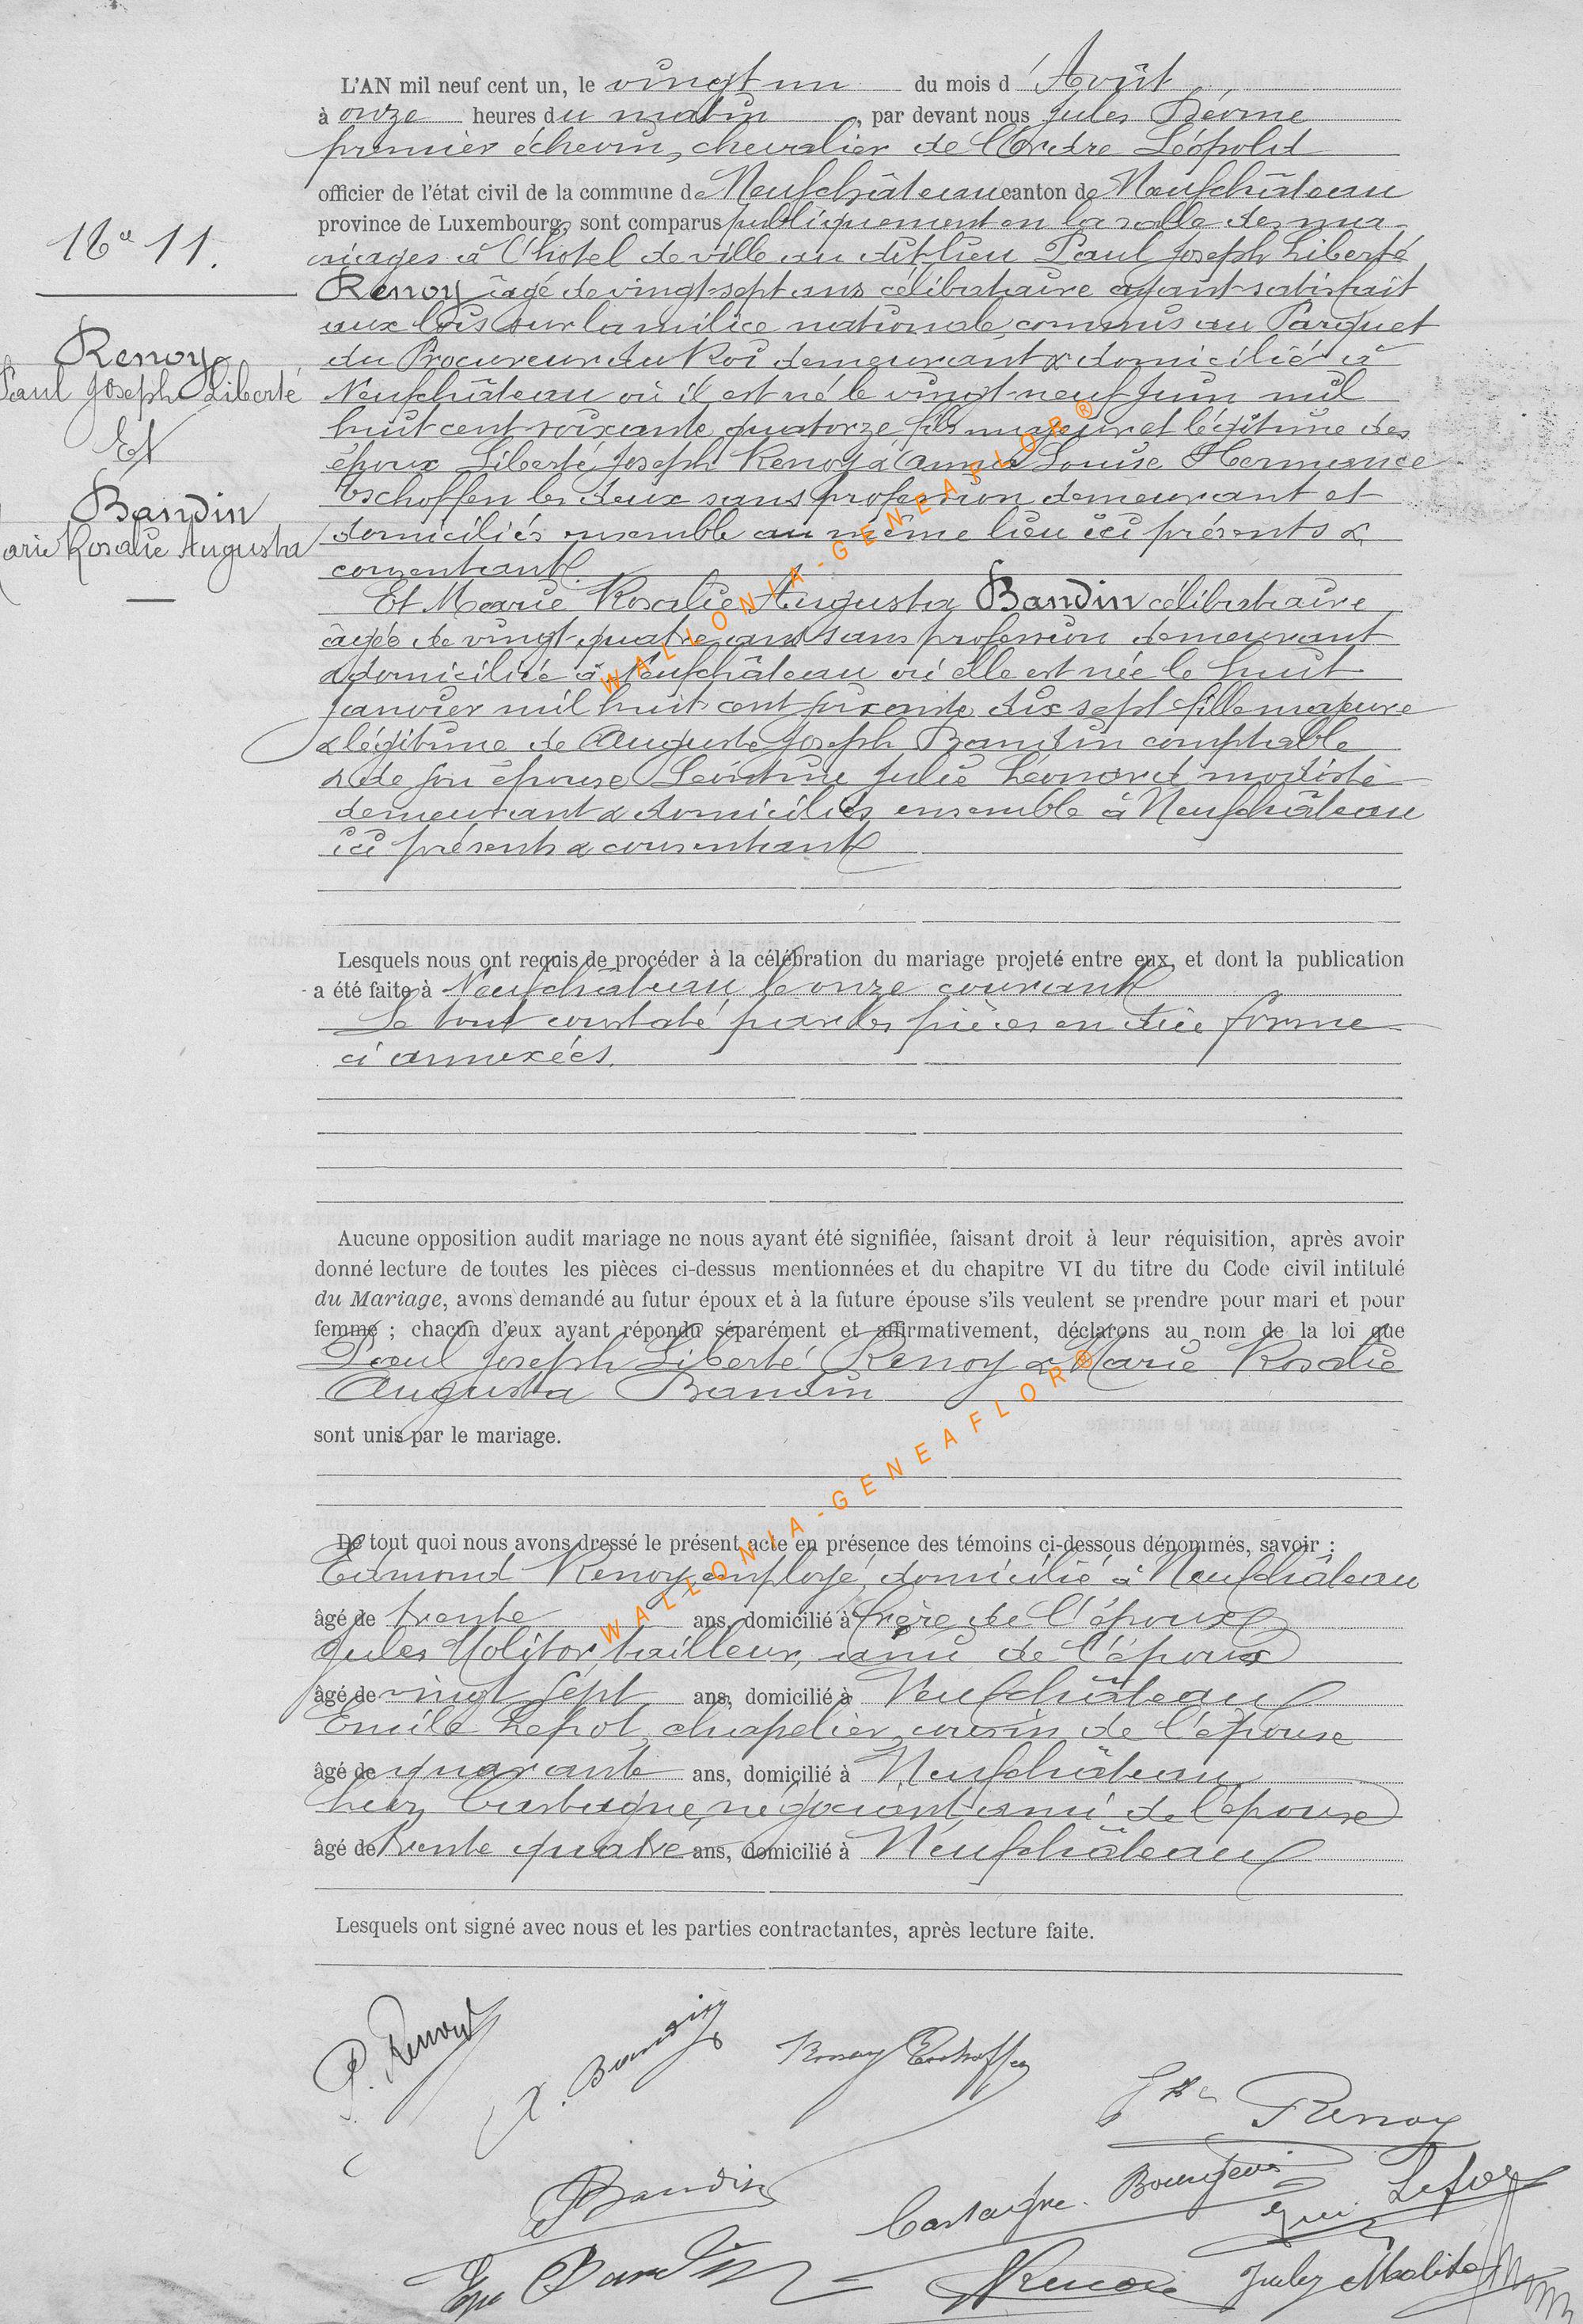 L'AN mil neuf cent un, le vingt un du mois d'Août
à onze heures du matin, par devant nous Jules
premier échevin, chevalier de l'Ordre Léopold
officier de l'état civil de la commune de Neufchâteau canton de Neufchâteau
province de Luxembourg, sont comparus publiquement en la salle des ma-
riages à l'hôtel de ville au dit lieu Paul Joseph Liberté
Renoy âgé de vingt-sept ans célibataire ayant satisfait
aux lois sur la milice nationale, commis au Parquet
du Procureur du Roi demeurant & domicilié à
Neufchâteau où il est né le vingt-neuf Juin mil
huit cent soixante quatorze, fils majeur et légitime des
époux Liberté Joseph Renoy & Anna Louise Hermance
Eschoffen les deux sans profession demeurant et
domiciliés ensemble au même lieu ici présents &
consentant.
Et Marie Rosalie Augusta Bandin célibataire
âgée de vingt-quatre ans sans profession demeurant
& domiciliée à Neufchâteau où elle est née le huit
Janvier mil huit cent soixante dix sept fille majeure
& légitime de Auguste Joseph Bandin comptable
& de son épouse Léontine Julie Léonard modiste
demeurant & domiciliés ensemble à Neufchâteau
ici présents & consentant
No 11.
Renoy
Paul Joseph Liberté
Et
Bandin
Marie Rosalie Augusta
Lesquels nous ont requis de procéder à la célébration du mariage projeté entre eux, et dont la publication
a été faite à Neufchâteau le onze courant
Le tout constaté par les pièces en due forme
ci annexées.
Aucune opposition audit mariage ne nous ayant été signifiée, faisant droit à leur réquisition, après avoir
donné lecture de toutes les pièces ci-dessus mentionnées et du chapitre VI du titre du Code civil intitulé
du Mariage, avons demandé au futur époux et à la future épouse s'ils veulent se prendre pour mari et pour
femme ; chacun d'eux ayant répondu séparément et affirmativement, déclarons au nom de la loi que
Paul Joseph Liberté Renoy & Marie Rosalie
Augusta Bandin
sont unis par le mariage.
De tout quoi nous avons dressé le présent acte en présence des témoins ci-dessous dénommés, savoir :
Edmond Renoy employé, domicilié à Neufchâteau
âgé de trente ans, domicilié à frère de l'époux
Jules Molitor, tailleur, ami de l'époux
âgé de vingt sept ans, domicilié à Neufchâteau
Emile Lefot, chapelier, cousin de l'épouse
âgé de quarante ans, domicilié à Neufchâteau
Castaigne, négociant, ami de l'épouse
âgé de trente quatre ans, domicilié à Neufchâteau
Lesquels ont signé avec nous et les parties contractantes, après lecture faite.
P. Renoy
A. Bandin
Renoy Eschoffen
Renoy
Bandin
Castaigne. Bourgeois
Lefot
Bandin
Renoy
Jules Molitor
WALLONIA-GENEAFLOR®
WALLONIA-GENEAFLOR®